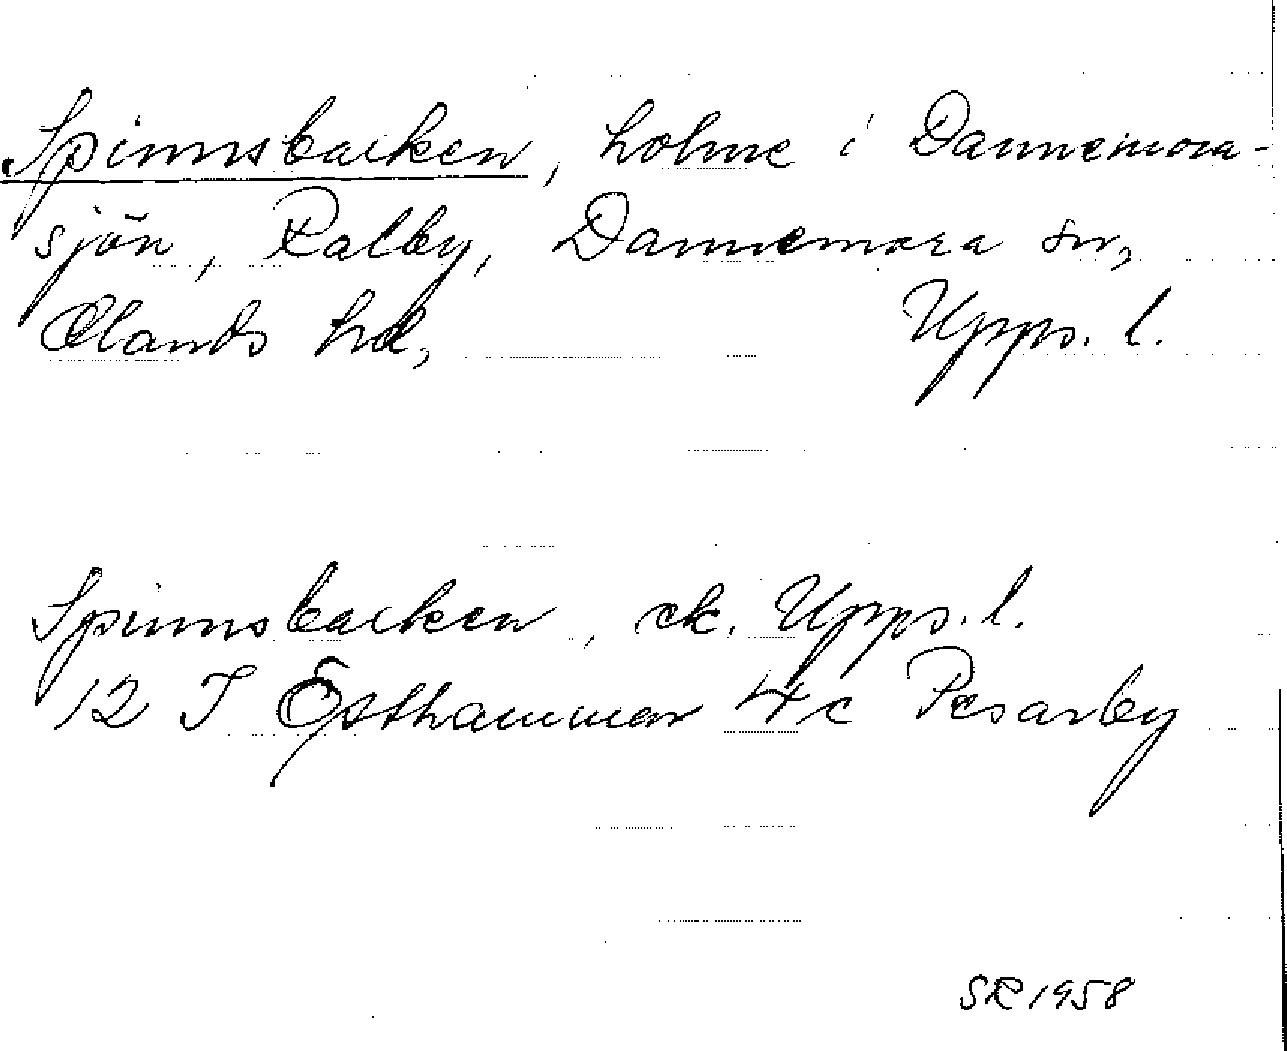 Spinnsbacken, holme i Dannemora-
sjön, Ralby, Dannemora sn,
Olands hd, Upps. l.
Spinnsbacken, ek. Upps. l.
12 I Östhammar 4c Pesarby
SR 1958